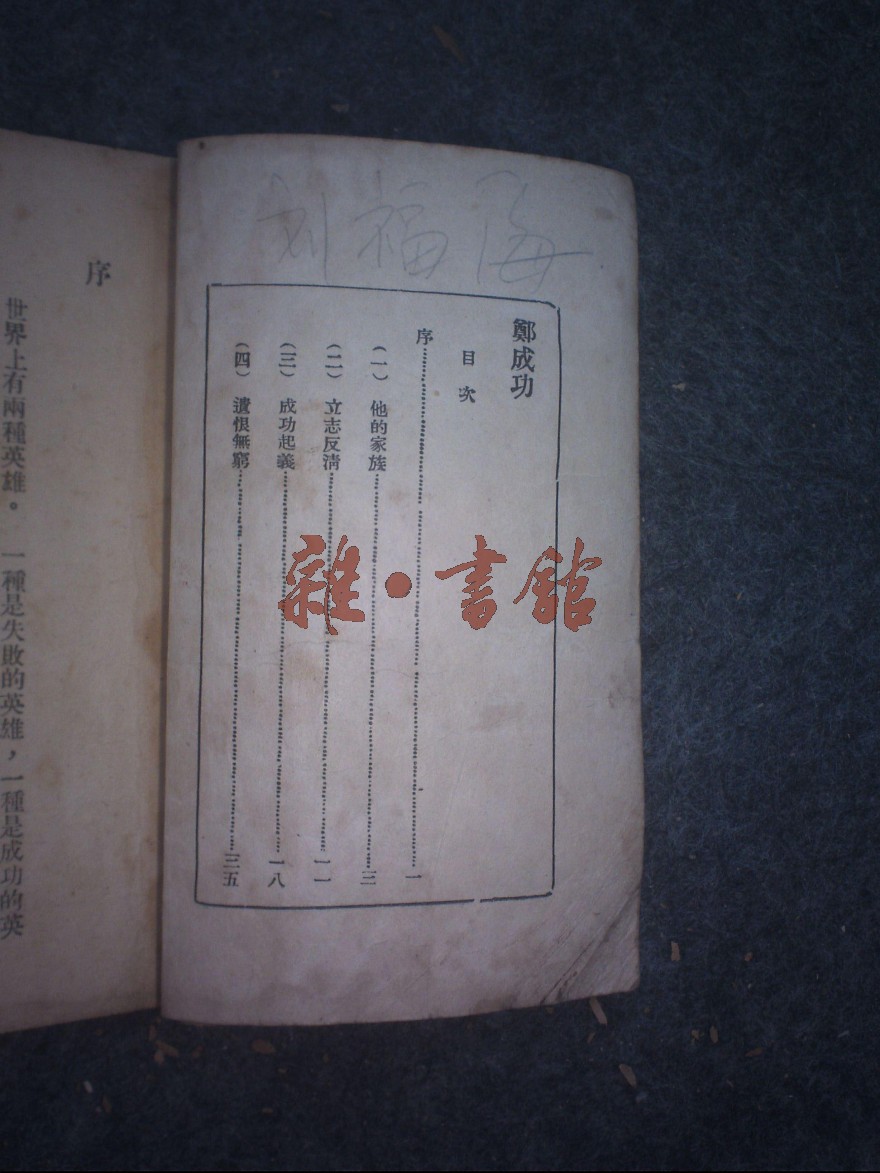 刘福海
鄭成功
目次
序……一
(一) 他的家族……三
(二) 立志反清……一一
(三) 成功起義……一八
(四) 遺恨無窮……三五
雜·書館
序
世界上有兩種英雄。一種是失敗的英雄，一種是成功的英